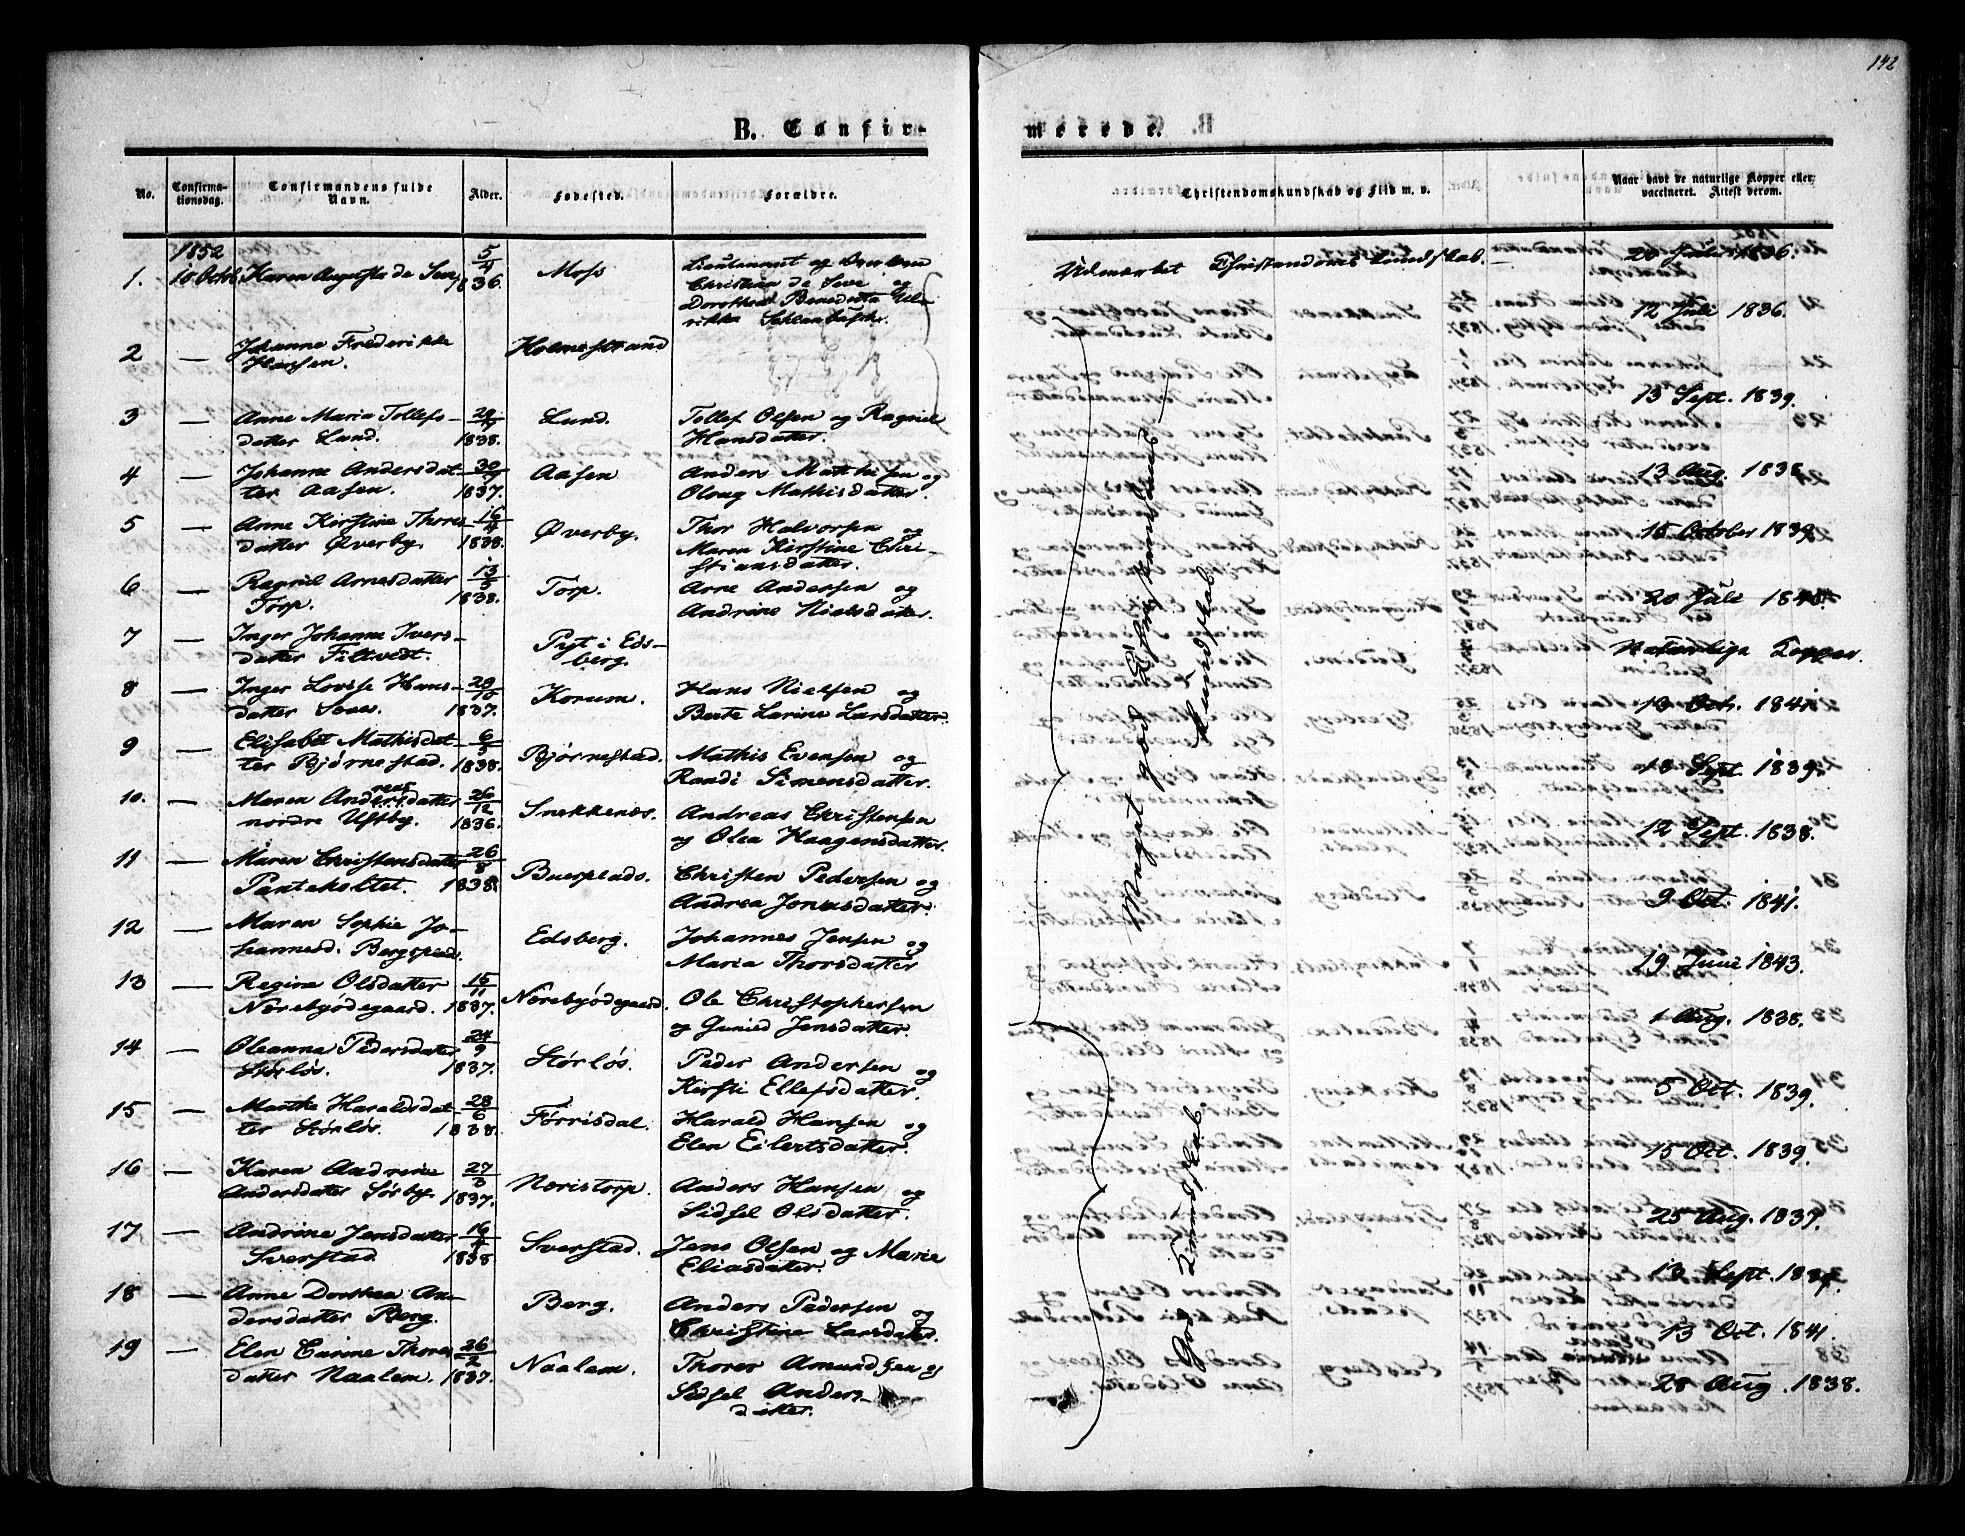 142
B. Confir-
merede.
No.
Confirma-
tionsdag.
Confirmandens fulde
Navn.
Alder.
Fødested.
Forældre.
Christendomskundskab og Flid m. v.
Naar havt de naturlige Kopper eller
vaccineret. Attest derom.
1852
1. 10 Octb. Karen Augusta de Seve 5/4 1836. Moss
Lieutennant og
Christian de Seve og
Dorothea Benedicta Ul-
rikka
Udmærket Christendoms Kundskab.
20 Juli 1836.
2 — Johanne Frederikke
Hansen. Holmestrand
12 Juli 1836.
3 — Anne Maria Tollefs-
datter Lund. 1838. Lund. Tollef Olsen og Ragnild
Hansdatter.
13 Sept. 1839.
4 — Johanne Andersdat-
ter Aasen. 1837. Aasen Anders Mathisen og
Oloug Mathisdatter.
13 Aug. 1838
5 — Anne Kirstine Thores-
datter Øverby. 16/4 1838. Øverby. Thor Halvorsen og
Maren Kirstine Chri-
stiansdatter.
15 October 1839
6 — Ragnild Arnesdatter
Torp. 13/5 1838. Torp. Arne Andersen og
Andrine Nielsdatter.
20 Juli 1843.
7 — Inger Johanne Ivers-
datter Filtvedt. Pyt i Eds-
berg.
Naturlige Kopper.
8 — Inger Lovise Hans-
datter Soves. 1837. Korum. Hans Nielsen og
Berte Larine Larsdatter.
13 Oct. 1841
9 — Elisabet Mathisdat-
ter Bjørnestad. 6/5 1838. Bjørnestad. Mathis Evensen og
Randi Simensdatter.
13 Sept. 1839.
10. — Maren Andreasdatter
nordre Ustby. 26/12 1836. Snekkenes. Andreas Christensen
og Olea Haagensdatter.
12 Sept. 1838.
11 — Maren Christensdatter
Panteholtet. 26/8 1838. Buerplads. Christen Pedersen og
Andrea Jonasdatter.
9 Oct. 1841.
12 — Maren Sophie Jo-
hannesd. Bergsplads. Edsberg. Johannes Jensen og
Maria Thorsdatter
19 Juni 1843.
13 — Regina Olsdatter
Norebyødegaard. 15/11 1837. Norebyødegaard. Ole Christophersen
og Gunild Jensdatter.
1 Aug. 1838.
14 — Oleanna Pedersdatter
Størløs. 24/9 1837. Størløs. Peder Andersen og
Kirsti Ellefsdatter.
5 Oct. 1839.
15 — Marthe Haraldsdat-
ter Størløs. 28/6 1838. Førrisdal. Harald Hansen og
Elen Eilertsdatter.
15 Oct. 1839.
16 — Karen Andrine
Andersdatter Løsby. 27/3 1837. Noristorp. Anders Hansen og
Sidsel Olsdatter.
25 Aug. 1837.
17 — Andrine Jensdatter
Sverstad. 16/4 1838 Sverstad. Jens Olsen og Marie
Eliasdatter.
13 Sept. 1839.
18 — Anne Dorthea An-
dersdatter Berg. Berg. Anders Pedersen og
Christine Larsdatter.
13 Oct. 1841.
19 — Elen Carine Thores-
datter Naalem. 26/2 1837. Naalem. Thorer Amundsen og
Sidsel Anders-
datter.
28 Aug. 1838.
Meget god Christendoms-
Kundskab.
God Kundskab.